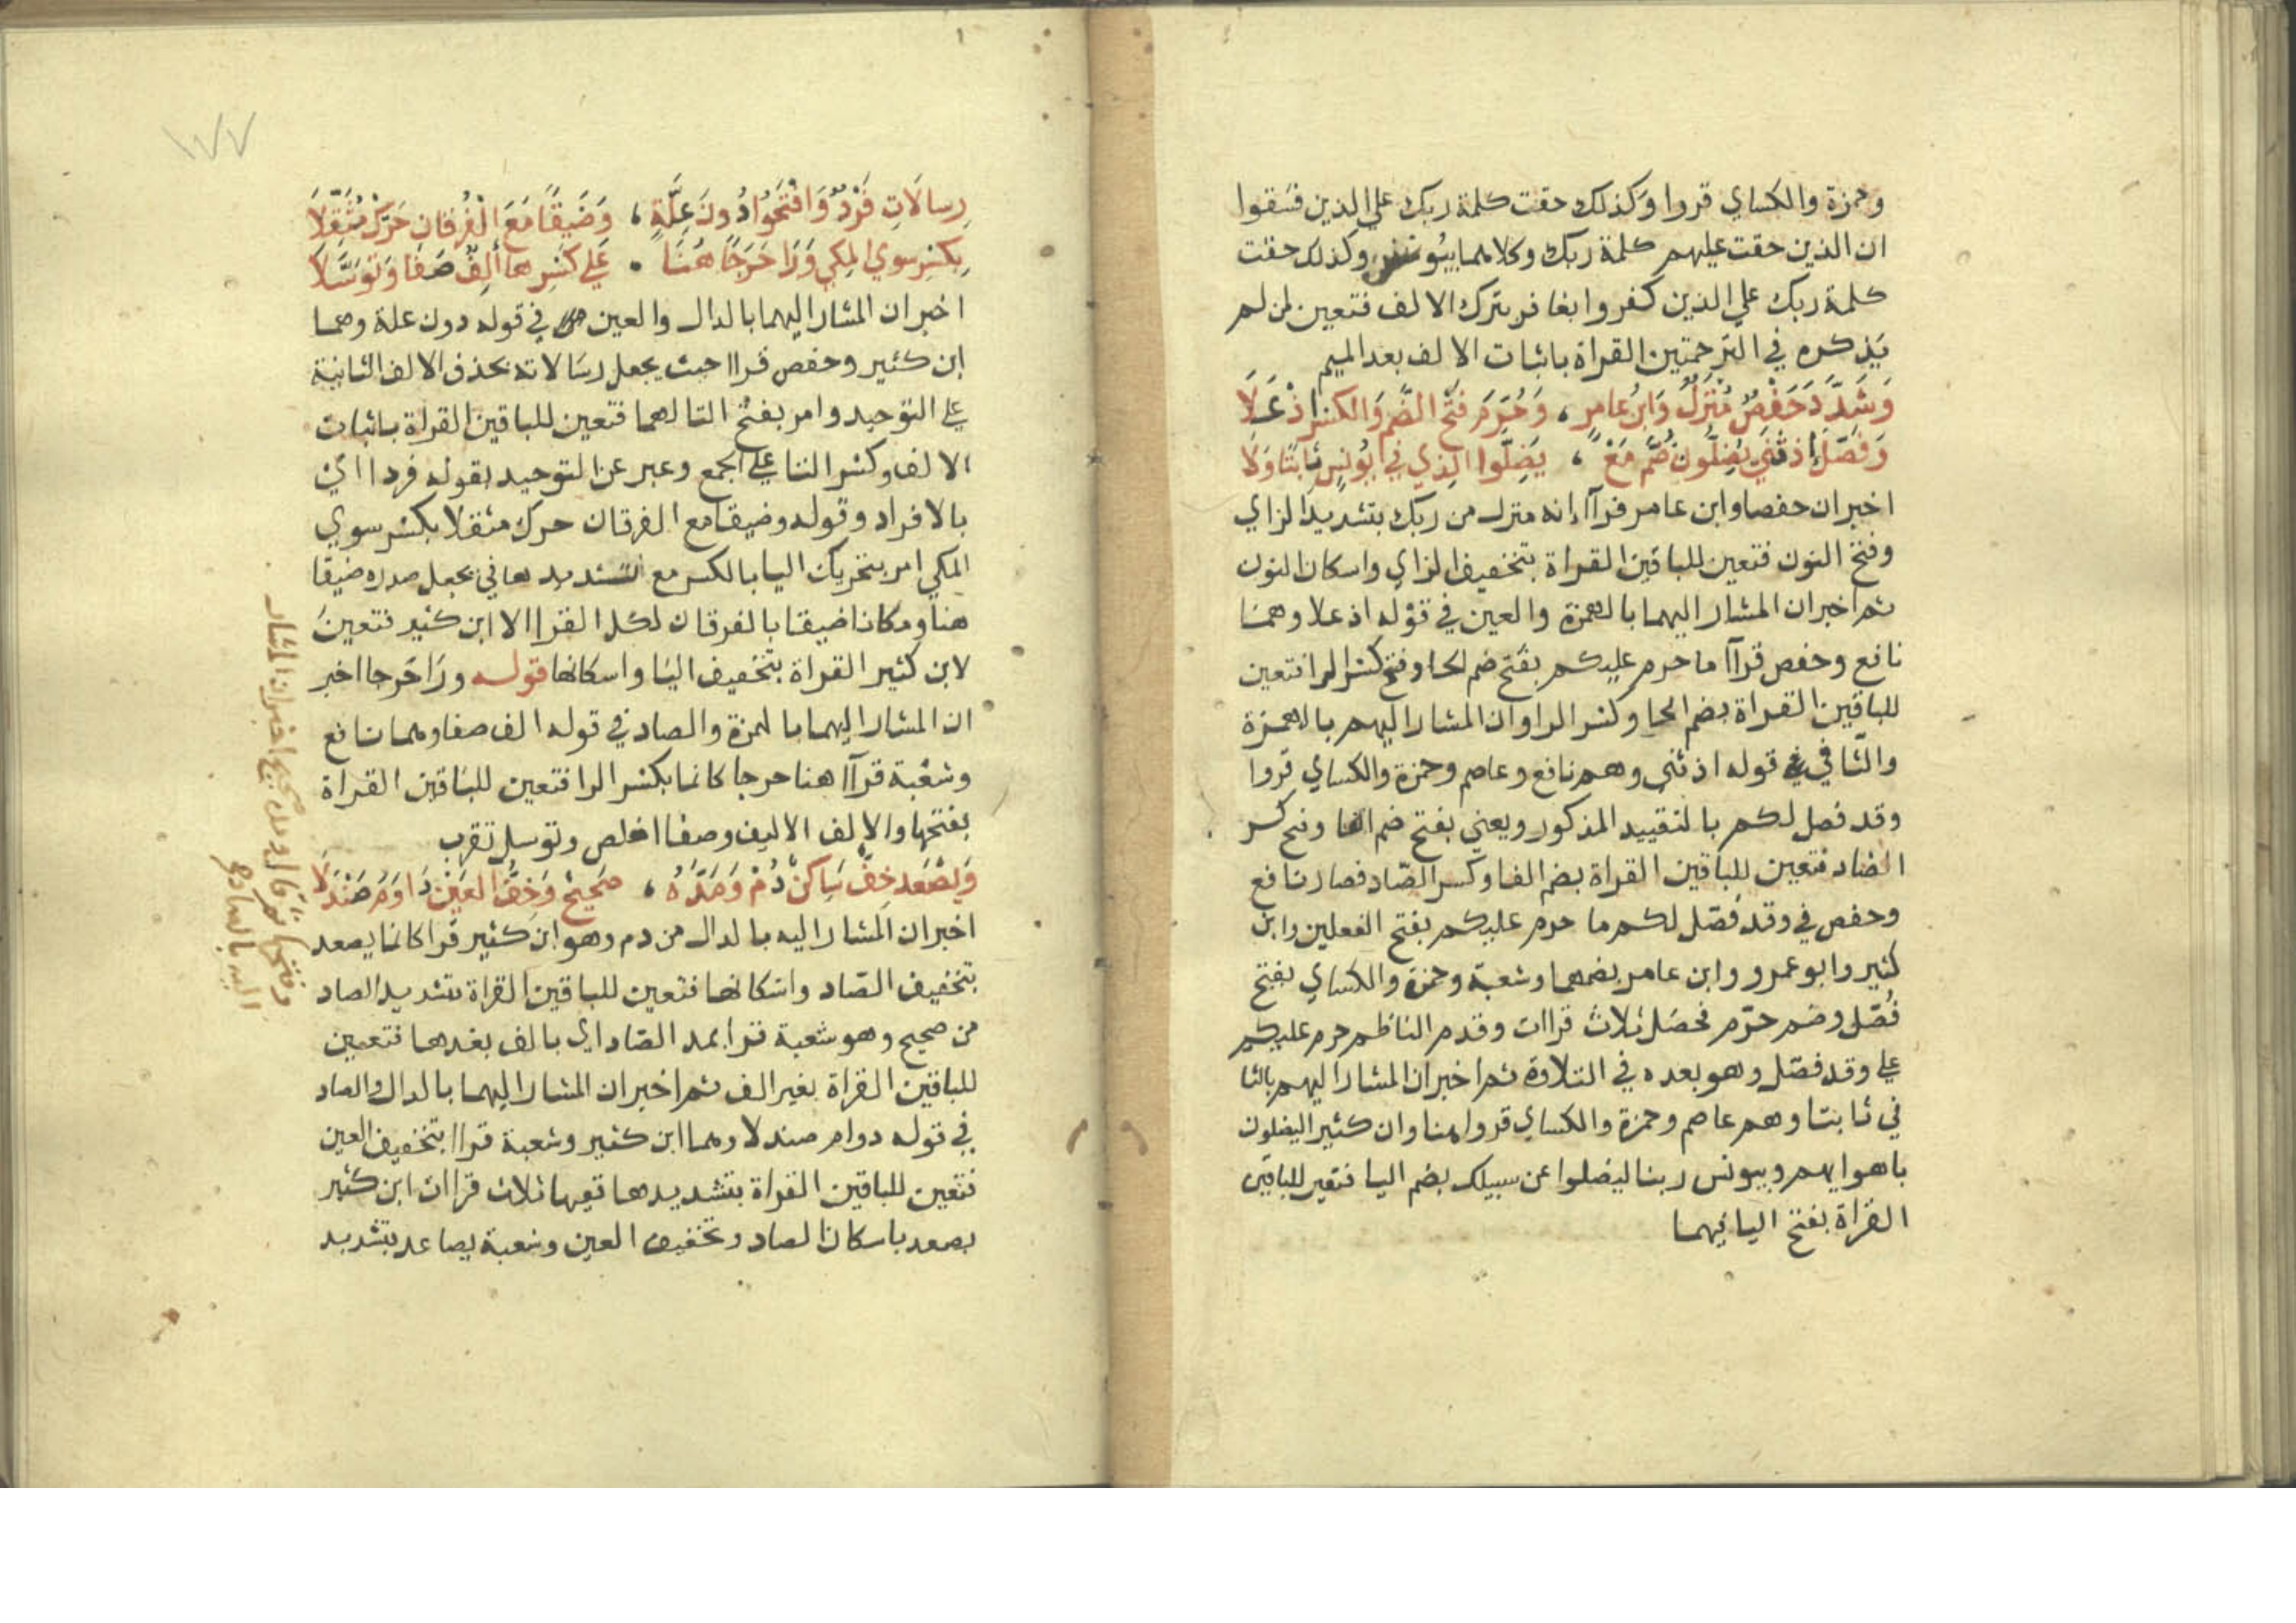 وحمزة والكساي قروا وكذلك حقت كلمة ربك علي الذين فسقوا
ان الذين حقت عليهم كلمة ربك وكلاهما بيونس وكذلك حقت
كلمة ربك علي الذين كفروا بغافر بترك الالف فتعين لمن لم
يذكره في الترجمتين القراة باثبات الالف بعد الميم
وَشَدَّدَ حَفْصٌ مُنْزَلٌ وَابْنُ عامِرٍ ، وَحُرِّمَ فتحُ الضَّمِ وَالكسْرِ اذْ عَلَا
وَفصّلَ إذ ثَنّي يَضِلُّونَ ضُمَّ مَعْ ، يَضِلّوا الذي في يُونسٍ ثابتًا وَلَا
اخبر ان حفصا وابن عامر قراا انه منزل من ربك بتشديد الزاي
وفتح النون فتعين للباقين القراة بتخفيف الزاي واسكان النون
ثم اخبر ان المشار اليهما بالهمزة والعين في قوله اذ علا وهما
نافع وحفص قراا ما حرم عليكم بفتح ضم الحا وفتح كسر الرا فتعين
للباقين القراة بضم الحا وكسر الرا وان المشار اليهم بالهمزة
والثا في قوله اذ ثني وهم نافع وعاصم وحمزة والكساي قروا
وقد فصل لكم بالتقييد المذكور ويعني بفتح ضم الفا وفتح كسر
الصاد فتعين للباقين القراة بضم الفا وكسر الصاد فصار نافع
وحفص في وقد فصّل لكم ما حرم عليكم بفتح الفعلين وابن
كثير وابو عمرو وابن عامر بضمهما وشعبة وحمزة والكساي بفتح
فُصّل وضم حرّم فحصَل ثلاث قراات وقدم الناظم حرم عليكم
علي وقد فصّل وهو بعده في التلاوة ثم اخبر ان المشار اليهم بالثا
في ثابتا وهم عاصم وحمزة والكساي قروا هنا وان كثيرا ليضلون
باهوايهم وبيونس ربنا ليضلوا عن سبيلك بضم اليا فتعين للباقين
القراة بفتح اليا فيهما
١
١٧٧
رِسالَاتِ فَرْدٌ وَافْتَحُوا دُونَ عِلَّةٍ ، وَضَيقًا مَعَ الْفُرقانِ حَرّكْ مُثَقِّلَا
بِكسْرٍ سوي المكي وَرَا حَرَجًا هُنَا . عَلي كسْرِها ألِفٌ صَفَا وَتَوَسَّلَا
اخبر ان المشار اليهما بالدال والعين في قوله دون علة وهما
ابن كثير وحفص قراا حيث يجعل رسالاته بحذف الالف الثانية
علي التوحيد وامر بفتح التا لهما فتعين للباقين القراة باثبات
الالف وكسر التا علي الجمع وعبر عن التوحيد بقوله فردا اي
بالافراد وقوله وضيقا مع الفرقان حرك مثقلا بكسر سوي
المكي امر بتحريك اليا بالكسر مع تشديدها في يجعل صدره ضيقا
هنا ومكانا ضيقا بالفرقان لكل القرا الا ابن كثير فتعين
لابن كثير القراة بتخفيف اليا واسكانها قوله ورا حرجا اخبر
ان المشار اليهما بالهمزة والصاد في قوله الف صفا وهما نافع
وشعبة قراا هنا حرجا كانما بكسر الرا فتعين للباقين القراة
بفتحها والالف الاليف وصفا اخلص وتوسل تقرب
وَيصْعَد خِفٌّ سَاكنٌ دُمْ وَمَدَّهُ ، صَحيحٌ وَخِفُّ العَيْنِ دَاوَمَ صَنْدَلَا
اخبر ان المشار اليه بالدال من دم وهو ابن كثير قرا كانما يصعد
بتخفيف الصاد واسكانها فتعين للباقين القراة بتشديد الصاد
من صحيح وهو شعبة قرا بمد الصاد اي بالف بعدها فتعين
للباقين القراة بغير الف ثم اخبر ان المشار اليهما بالدال والصاد
في قوله دوام صندلا وهما ابن كثير وشعبة قراا بتخفيف العين
فتعين للباقين القراة بتشديدها ففيها ثلاث قراات ابن كثير
يصعد باسكان الصاد وتخفيف العين وشعبة يصاعد بتشديد
وفتحها ثم قال ومده صحيح اخبر ان المشار
اليه بالصاد